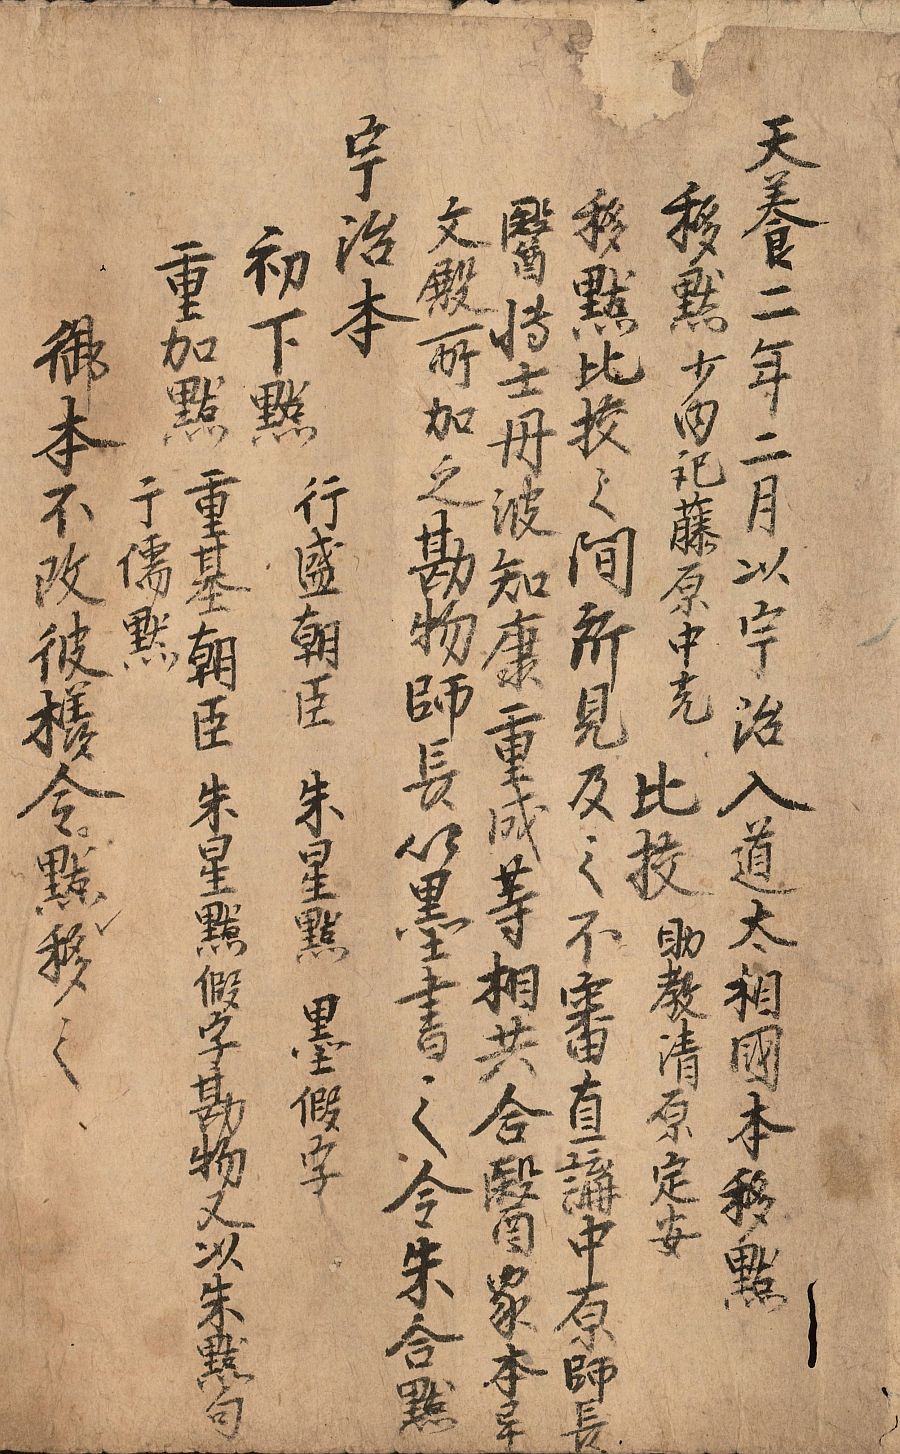 天養二年二月以宇治入道太相國本移點
移點 少内記藤原中光
比挍 助教清原定安
移點比挍之間所見及之不審直講中原師長
醫博士丹波知康重成等相共合醫家本畢
文殿所加之勘物師長以墨書之令朱合點
宇治本
初下點 行盛朝臣 朱星點 墨假字
重加點 重基朝臣 朱星點假字勘物又以朱點句
于儒點
御本不改彼樣令點移之